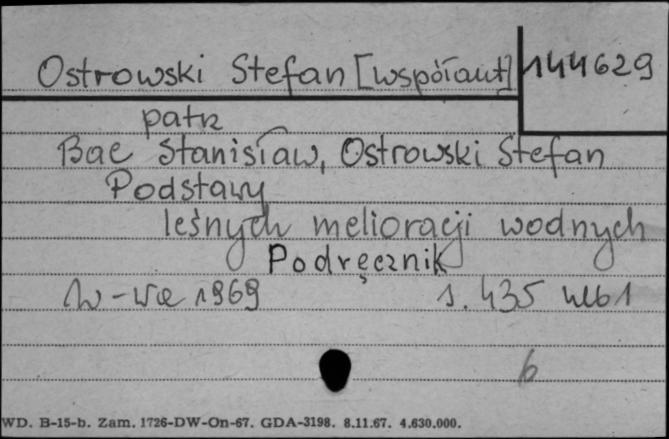 Ostrowski Stefan [współaut] 144629
patrz
Bac Stanisław, Ostrowski Stefan
Podstawy
leśnych melioracji wodnych
Podręcznik
W-wa 1969 s. 435 nlb 1
b
WD. B-15-b. Zam. 1726-DW-On-67. GDA-3198. 8.11.67. 4.630.000.